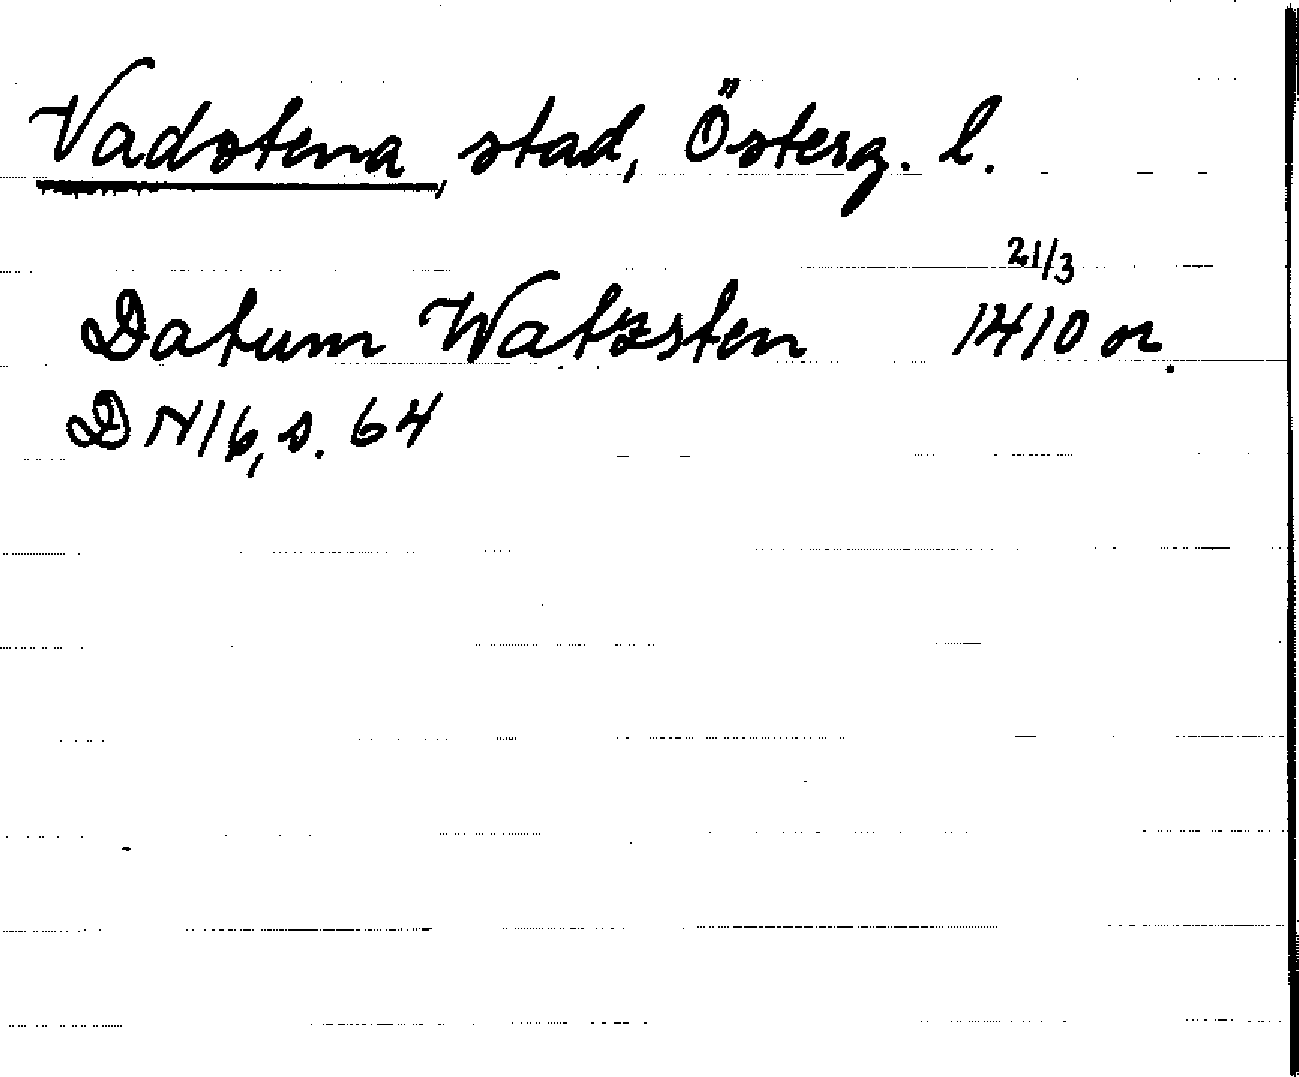 Vadstena, stad, Österg. l.
21/3
Datum Watzsten 1410 or.
DN 16, s. 64